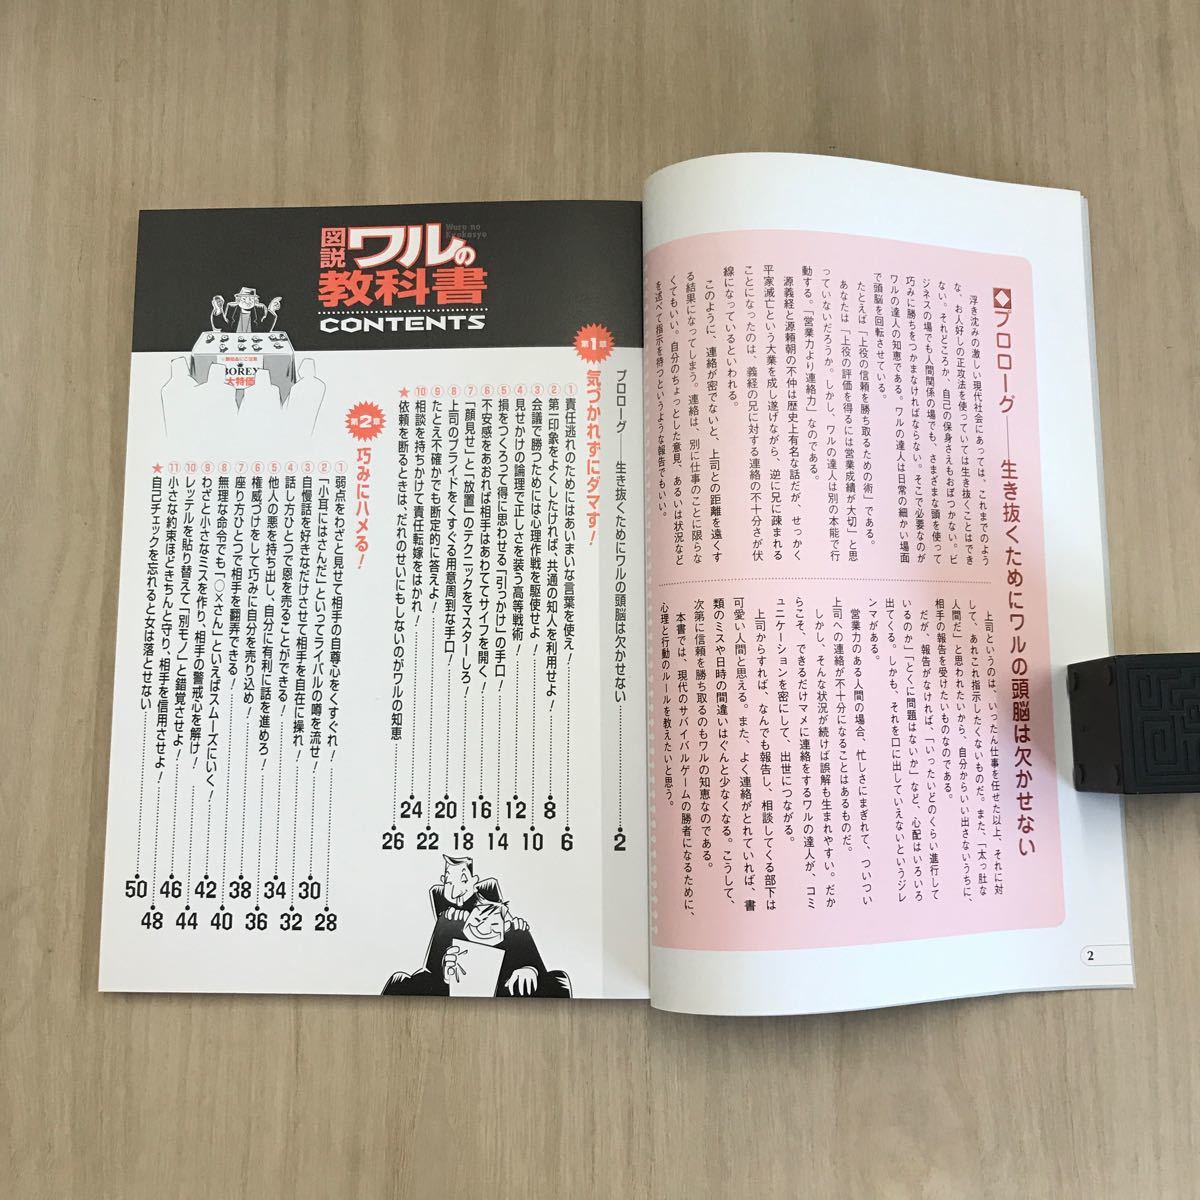 ◆プロローグ――生き抜くためにワルの頭脳は欠かせない
浮き沈みの激しい現代社会にあっては、これまでのよう
な、お人好しの正攻法を使っていては生き抜くことはでき
ない。それどころか、自己の保身さえもおぼつかない。ビ
ジネスの場でも人間関係の場でも、さまざまな頭を使って
巧みに勝ちをつかまなければならない。そこで必要なのが
ワルの達人の知恵である。ワルの達人は日常の細かい場面
で頭脳を回転させている。
たとえば「上役の信頼を勝ち取るための術」である。
あなたは「上役の評価を得るには営業成績が大切」と思
っていないだろうか。しかし、ワルの達人は別の本能で行
動する。「営業力より連絡力」なのである。
源義経と源頼朝の不仲は歴史上有名な話だが、せっかく
平家滅亡という大業を成し遂げながら、逆に兄に疎まれる
ことになったのは、義経の兄に対する連絡の不十分さが伏
線になっているといわれる。
このように、連絡が密でないと、上司との距離を遠くす
る結果になってしまう。連絡は、別に仕事のことに限らな
くてもいい。自分のちょっとした意見、あるいは状況など
を述べて指示を待つというような報告でもいい。
上司というのは、いったん仕事を任せた以上、それに対
して、あれこれ指示したくないものだ。また、「太っ肚な
人間だ」と思われたいから、自分からいい出さないうちに、
相手の報告を受けたいものなのである。
だが、報告がなければ、「いったいどのくらい進行して
いるのか」「とくに問題はないか」など、心配はいろいろ
出てくる。しかも、それを口に出していえないというジレ
ンマがある。
営業力のある人間の場合、忙しさにまぎれて、ついつい
上司への連絡が不十分になることはあるものだ。
しかし、そんな状況が続けば誤解も生まれやすい。だか
らこそ、できるだけマメに連絡をするワルの達人が、コミ
ュニケーションを密にして、出世につながる。
上司からすれば、なんでも報告し、相談してくる部下は
可愛い人間と思える。また、よく連絡がとれていれば、書
類のミスや日時の間違いはぐんと少なくなる。こうして、
次第に信頼を勝ち取るのもワルの知恵なのである。
本書では、現代のサバイバルゲームの勝者になるために、
心理と行動のルールを教えたいと思う。
2
図説 ワルの教科書
Waru no Kyokasyo
CONTENTS
BOREY
大特価
プロローグ――生き抜くためにワルの頭脳は欠かせない 2
第1章 気づかれずにダマす！
① 責任逃れのためにはあいまいな言葉を使え！ 6
② 第一印象をよくしたければ、共通の知人を利用せよ！ 8
③ 会議で勝つためには心理作戦を駆使せよ 10
④ 見せかけの論理で正しさを装う高等戦術！ 12
⑤ 損をつくろって得に思わせる「引っかけ」の手口！ 14
⑥ 不安感をあおれば相手はあわててサイフを開く！ 16
⑦ 「顔見せ」と「放置」のテクニックをマスターしろ！ 18
⑧ 上司のプライドをくすぐる用意周到な手口！ 20
⑨ たとえ不確かでも断定的に答えよ！ 22
⑩ 相談を持ちかけて責任転嫁をはかれ！ 24
★ 依頼を断るときは、だれのせいにもしないのがワルの知恵 26
第2章 巧みにハメる！
① 弱点をわざと見せて相手の自尊心をくすぐれ！ 28
② 「小耳にはさんだ」といってライバルの噂を流せ！ 30
③ 自慢話を好きなだけさせて相手を自在に操れ！ 32
④ 話し方ひとつで恩を売ることができる！ 34
⑤ 他人の悪を持ち出し、自分に有利に話を進めろ！ 36
⑥ 権威づけをして巧みに自分を売り込め！ 38
⑦ 座り方ひとつで相手を翻弄できる！ 40
⑧ 無理な命令でも「○×さん」といえばスムーズにいく！ 42
⑨ わざと小さなミスを作り、相手の警戒心を解け！ 44
⑩ レッテルを貼り替えて「別モノ」と錯覚させよ！ 46
⑪ 小さな約束ほどきちんと守り、相手を信用させよ！ 48
★ 自己チェックを忘れると女は落とせない 50